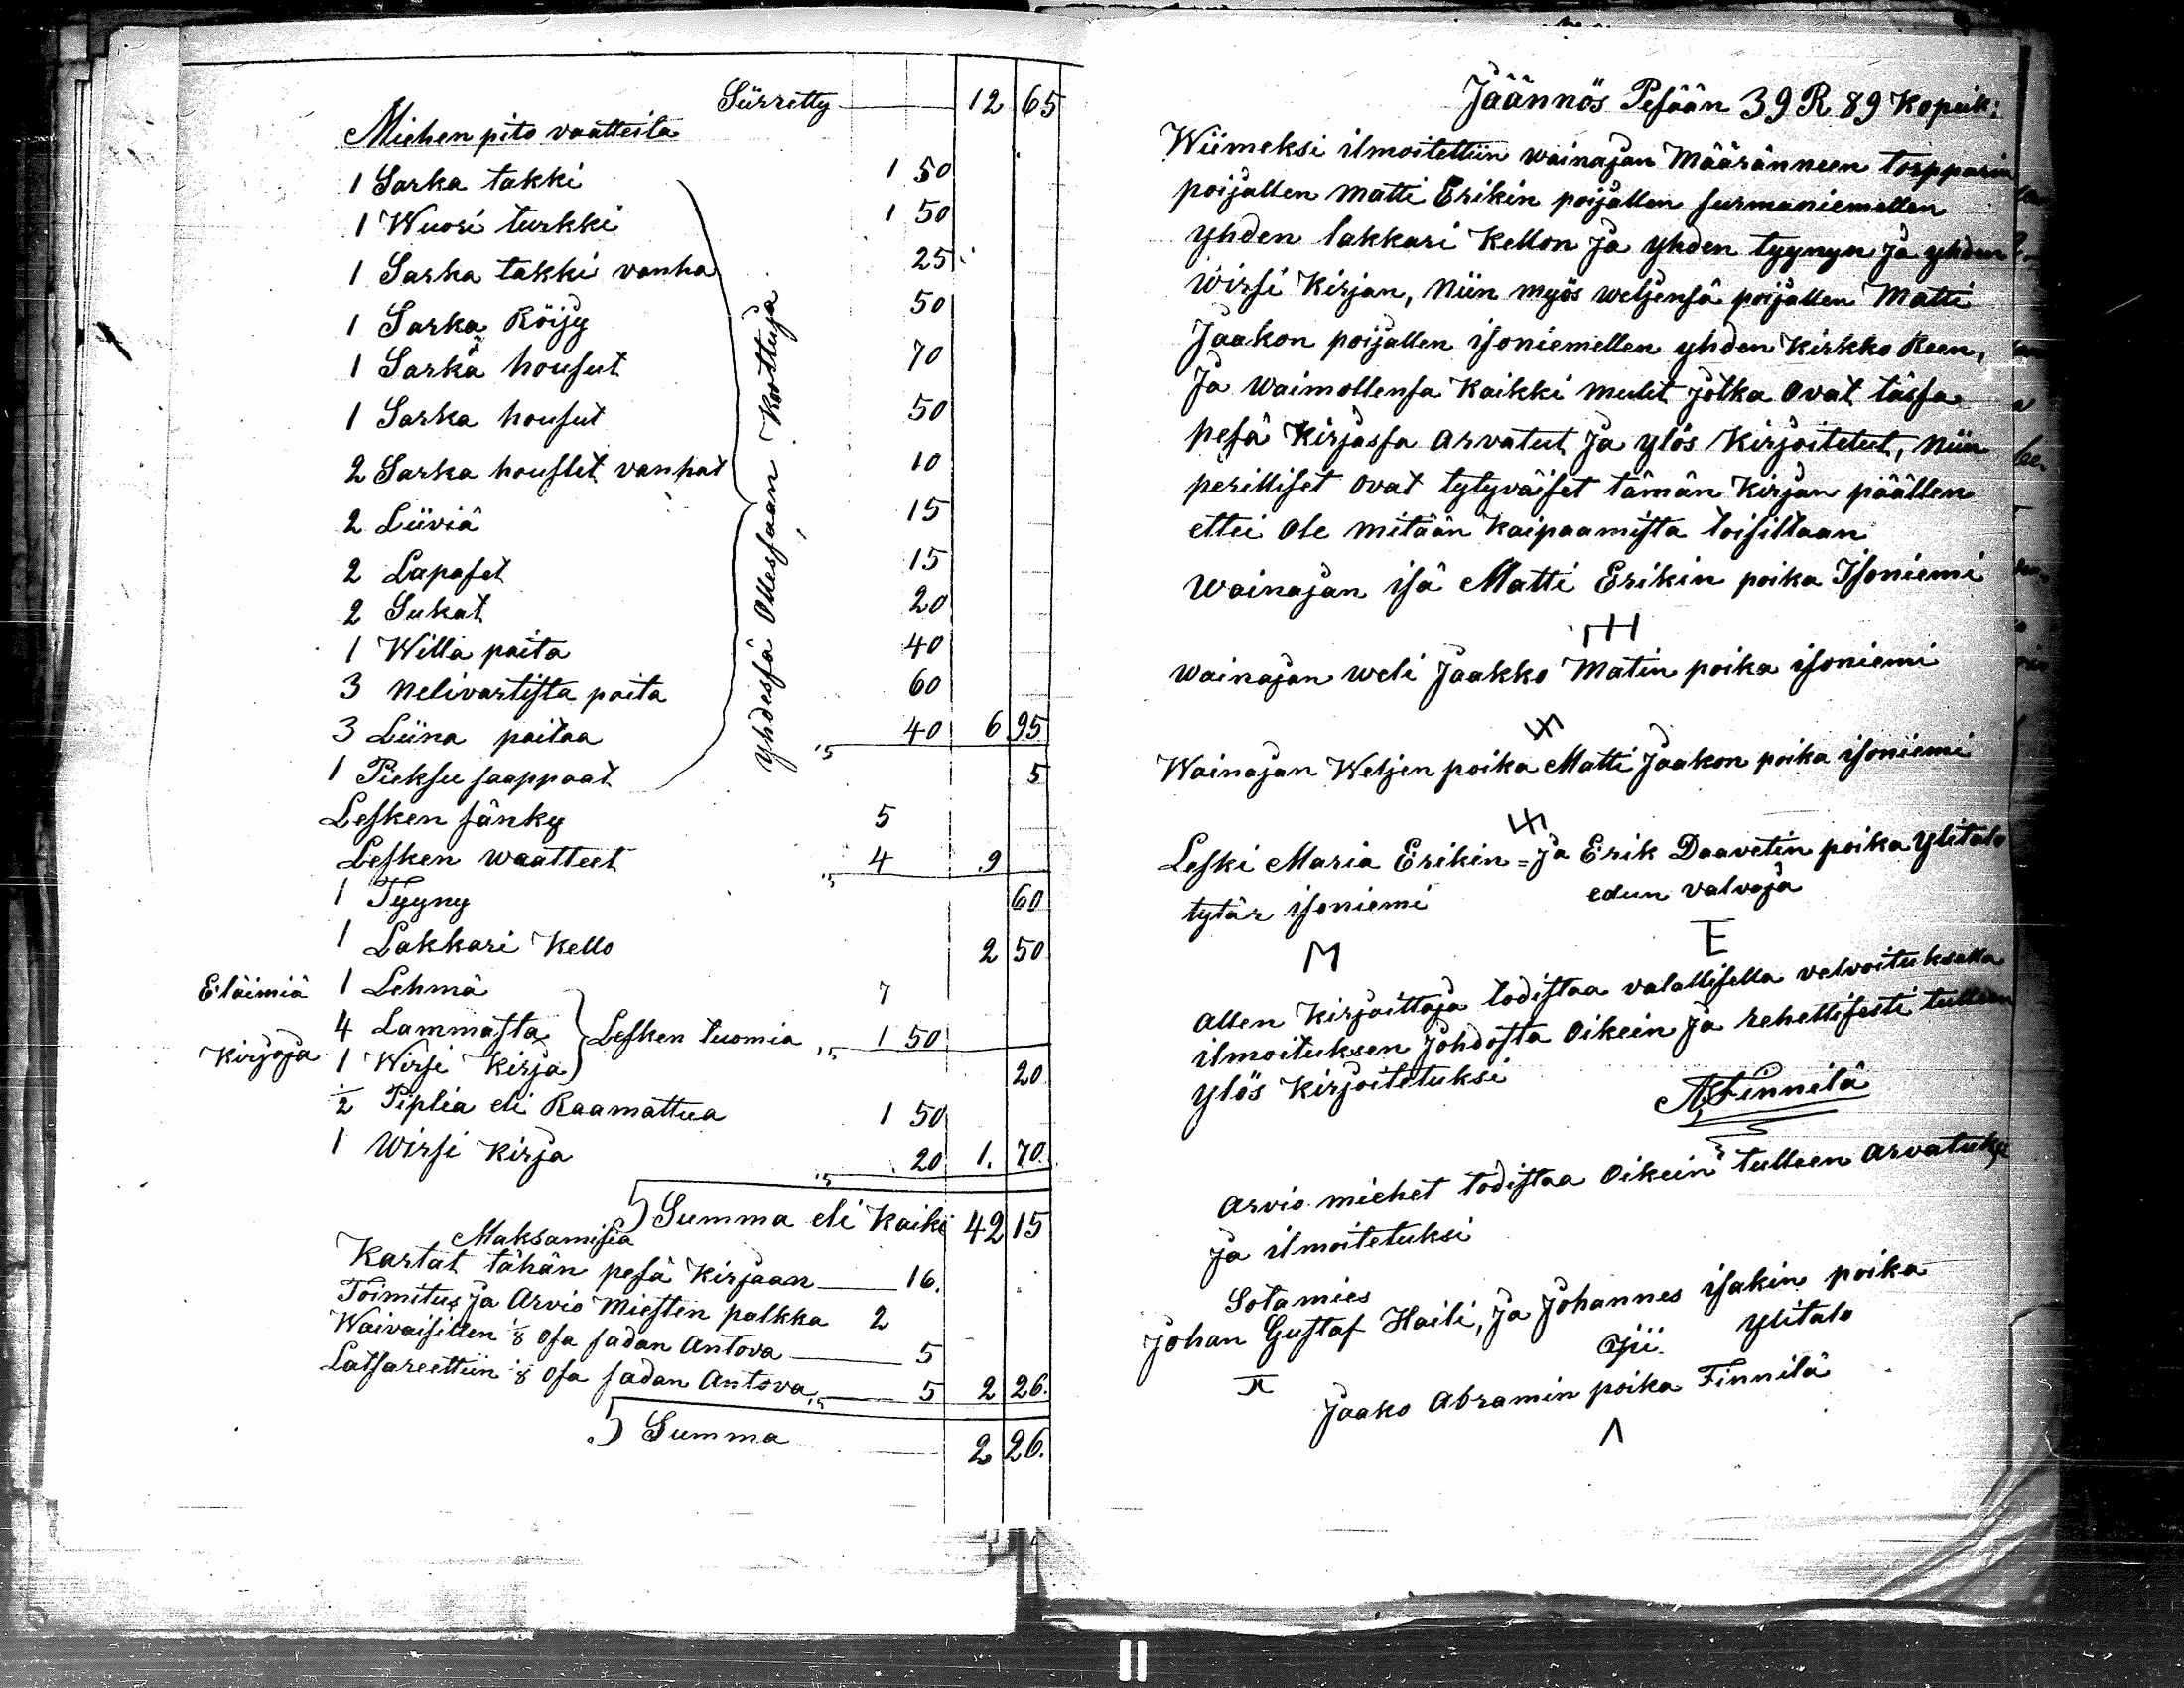 Siirretty 12 65
Miehen pito vaatteita
1 Sarka takki 1 50
1 Wuori turkki 1 50
1 Sarka takki vanha 25
1 Sarka Röijy 50
1 Sarka housut 70
1 Sarka housut 50
2 Sarka houslet vanhat 10
2 Liiviä 15
2 Lapaset 15
2 Sukat 20
1 Willa paita 40
3 nelivartista paita 60
3 Liina paitaa 40 6 95
1 Pieksu saappaat 5
yhdessä Ollessaan Koottuja
Lesken sänky 5
Lesken waatteet 4 9
1 Tyyny 60
1 Lakkari Kello 2 50
Eläimiä 1 Lehmä 7
4 Lammasta Lesken tuomia 1 50
Kirjoja 1 Wirsi Kirja 20
1/2 Piplia eli Raamattua 1 50
1 Wirsi Kirja 20 1. 70.
Summa eli Kaiki 42 15
Maksamisia
Kartat tähän pesä Kirjaan 16.
Toimitus ja Arvio Miesten palkka 2
Waivaisillen 1/8 Osa sadan Antova 5
Latsareettiin 1/8 Osa sadan Antova 5 2 26.
Summa 2 26.
Jäännös Pesään 39 R 89 Kopeik:
Wiimeksi ilmoitettiin wainajan Määränneen torpparin
poijallen Matti Erikin poijallen surmaniemellen
yhden lakkari Kellon ja yhden tyynyn ja yhden
Wirsi Kirjan, Niin myös weljensä poijallen Matti
Jaakon poijallen isoniemellen yhden Kirkko Reen,
Ja Waimollensa Kaikki Mutet jotka Ovat tässa
pesä Kirjassa Arvatut ja ylös Kirjoitetut, Niin
perilliset Ovat tytyväiset tämän Kirjan päällen
ettei Ole Mitään Kaipaamista toisiltaan
Wainajan isä Matti Erikin poika Isoniemi
wainajan weli Jaakko Matin poika isoniemi
Wainajan Weljen poika Matti Jaakon poika isoniemi
Leski Maria Erikin = ja Erik Daavetin poika Ylitalo
tytär isoniemi edun valvoja
M E
Allen Kirjoittaja todistaa valallisella velvoituksella
ilmoituksen Johdosta Oikein ja rehellisesti tulleen
Ylös Kirjoitetuksi
A Finnilä
Arvio miehet todistaa Oikein tulleen Arvatuksi
Ja ilmoitetuksi
Sotamies
Johan Gustaf Haili, Ja Johannes isakin poika
Ylitalo
Jaako Abramin poika Finnilä
II